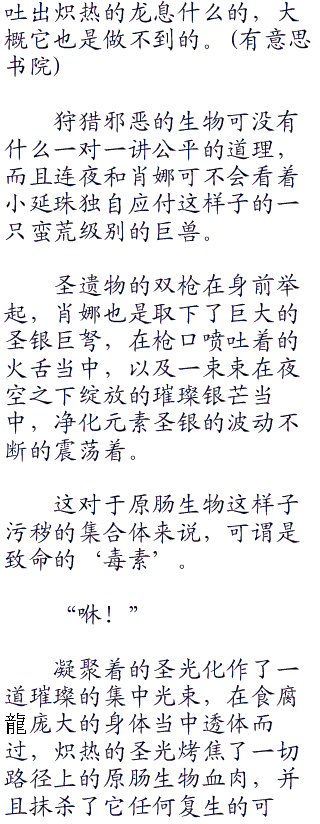 吐出炽热的龙息什么的，大
概它也是做不到的。(有意思
书院)
狩猎邪恶的生物可没有
什么一对一讲公平的道理，
而且连夜和肖娜可不会看着
小延珠独自应付这样子的一
只蛮荒级别的巨兽。
圣遗物的双枪在身前举
起，肖娜也是取下了巨大的
圣银巨弩，在枪口喷吐着的
火舌当中，以及一束束在夜
空之下绽放的璀璨银芒当
中，净化元素圣银的波动不
断的震荡着。
这对于原肠生物这样子
污秽的集合体来说，可谓是
致命的‘毒素’。
“咻！”
凝聚着的圣光化作了一
道璀璨的集中光束，在食腐
龍庞大的身体当中透体而
过，炽热的圣光烤焦了一切
路径上的原肠生物血肉，并
且抹杀了它任何复生的可